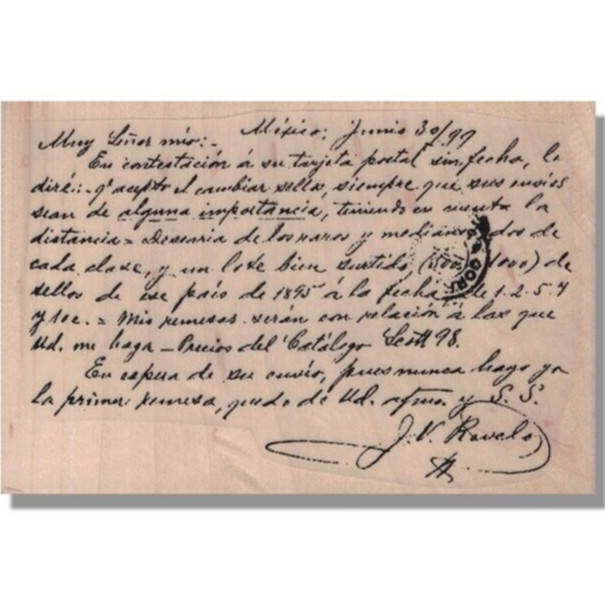 México, Junio 30/99
Muy Señor mio:-
En contestación á su tarjeta postal sin fecha, le
diré:- qe acepto el cambiar sellos, siempre que sus envios
sean de alguna importancia, teniendo en cuenta la
distancia = Desearia de los raros y medianos dos de
cada clase, y un lote bien surtido (500 1000) de
sellos de ese país de 1895 á la fecha de 1. 2. 5. y
y 10c. = Mis remesas serán con relación á las que
Ud. me haga - Precios del Catálogo Scott 98.
En espera de su envio, pues nunca hago yo
la primer remesa, quedo de Ud. afmo. y S. S.
J. V. Ravelo